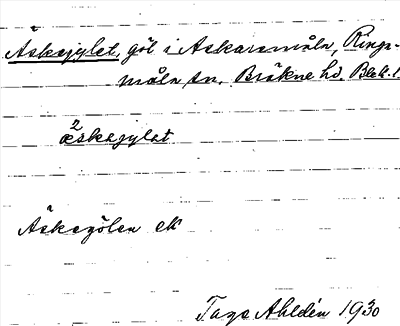 Äskegylet, göl i Askaremåla, Ringa-
måla sn. Bräkne hd. Blek. l.
²æskegylet
Äskegölen ek
Tage Ahldén 1930